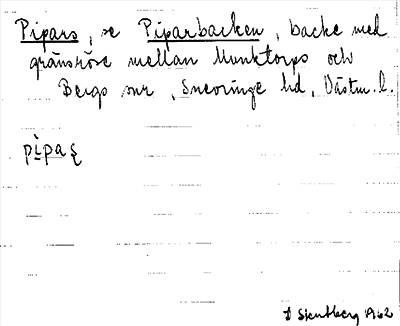 Pipars, se Piparbacken, backe med
gränsröse mellan Munktorps och
Bergs snr, Snevringe hd, Västm. l.
pi̇paʂ
D Stentberg 1962